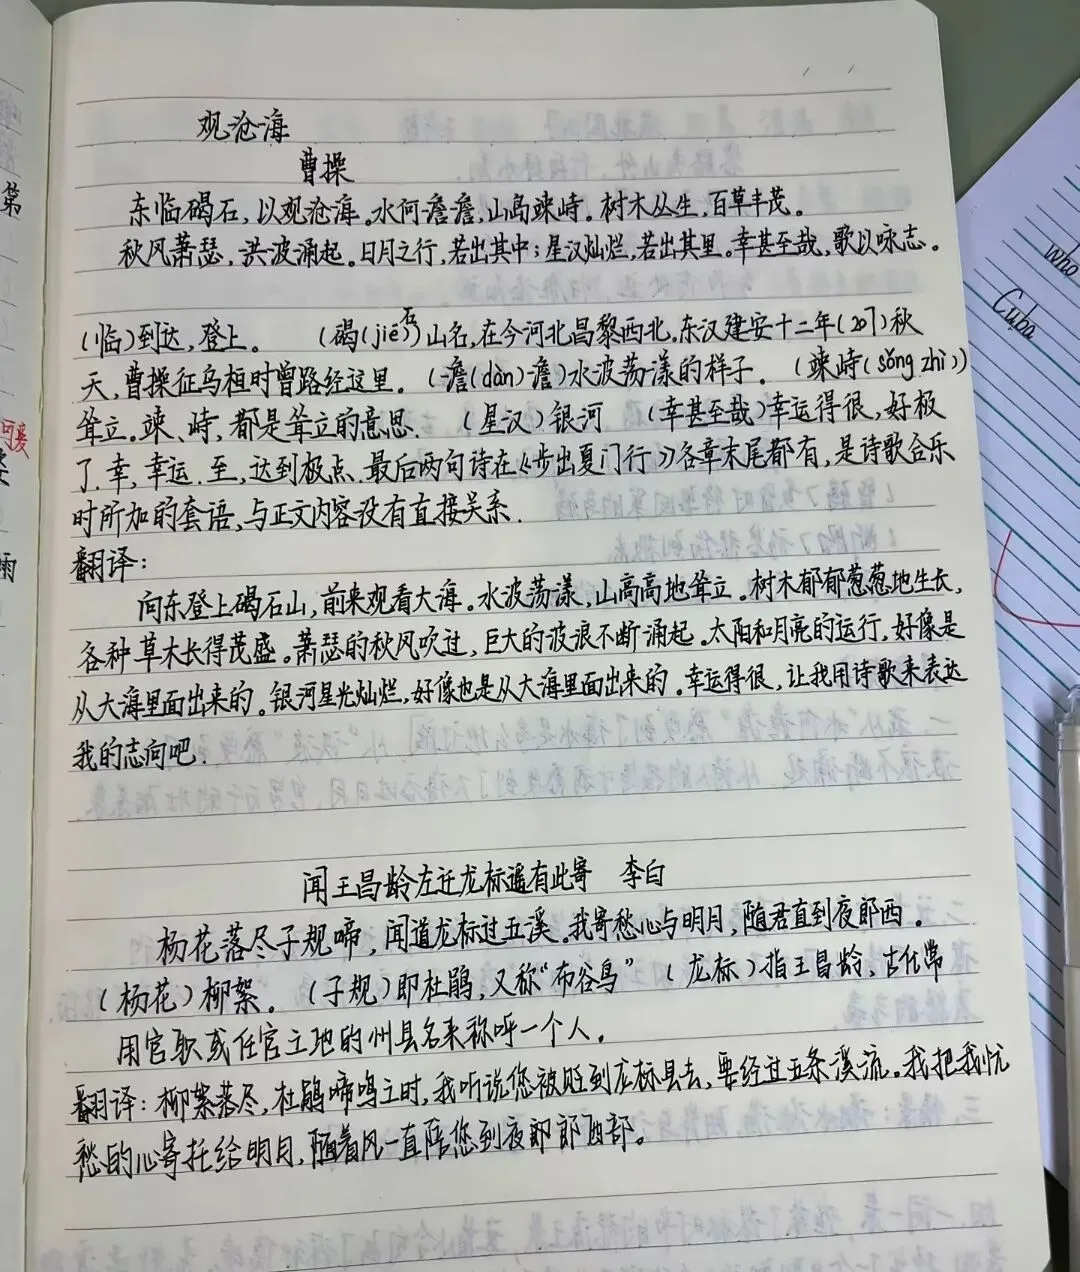 观沧海
曹操
东临碣石，以观沧海。水何澹澹，山岛竦峙。树木丛生，百草丰茂。
秋风萧瑟，洪波涌起。日月之行，若出其中；星汉灿烂，若出其里。幸甚至哉，歌以咏志。
(临)到达，登上。 (碣(jié)石)山名，在今河北昌黎西北，东汉建安十二年(207)秋
天，曹操征乌桓时曾路经这里。(澹(dàn)澹)水波荡漾的样子。(竦峙(sǒng zhì))
耸立。竦、峙，都是耸立的意思. (星汉)银河 (幸甚至哉)幸运得很，好极
了.幸，幸运.至，达到极点.最后两句诗在《步出夏门行》各章末尾都有，是诗歌合乐
时所加的套语，与正文内容没有直接关系.
翻译：
向东登上碣石山，前来观看大海。水波荡漾，山高高地耸立。树木郁郁葱葱地生长，
各种草木长得茂盛。萧瑟的秋风吹过，巨大的波浪不断涌起。太阳和月亮的运行，好像是
从大海里面出来的。银河星光灿烂，好像也是从大海里面出来的。幸运得很，让我用诗歌来表达
我的志向吧.
闻王昌龄左迁龙标遥有此寄 李白
杨花落尽子规啼，闻道龙标过五溪。我寄愁心与明月，随君直到夜郎西.
(杨花)柳絮。(子规)即杜鹃，又称“布谷鸟” (龙标)指王昌龄，古代常
用官职或任官之地的州县名来称呼一个人。
翻译：柳絮落尽，杜鹃啼鸣之时，我听说您被贬到龙标县去，要经过五条溪流。我把我忧
愁的心寄托给明月，随着风一直陪您到夜郎郎西部。
第
可爱
雨
who
Cuba